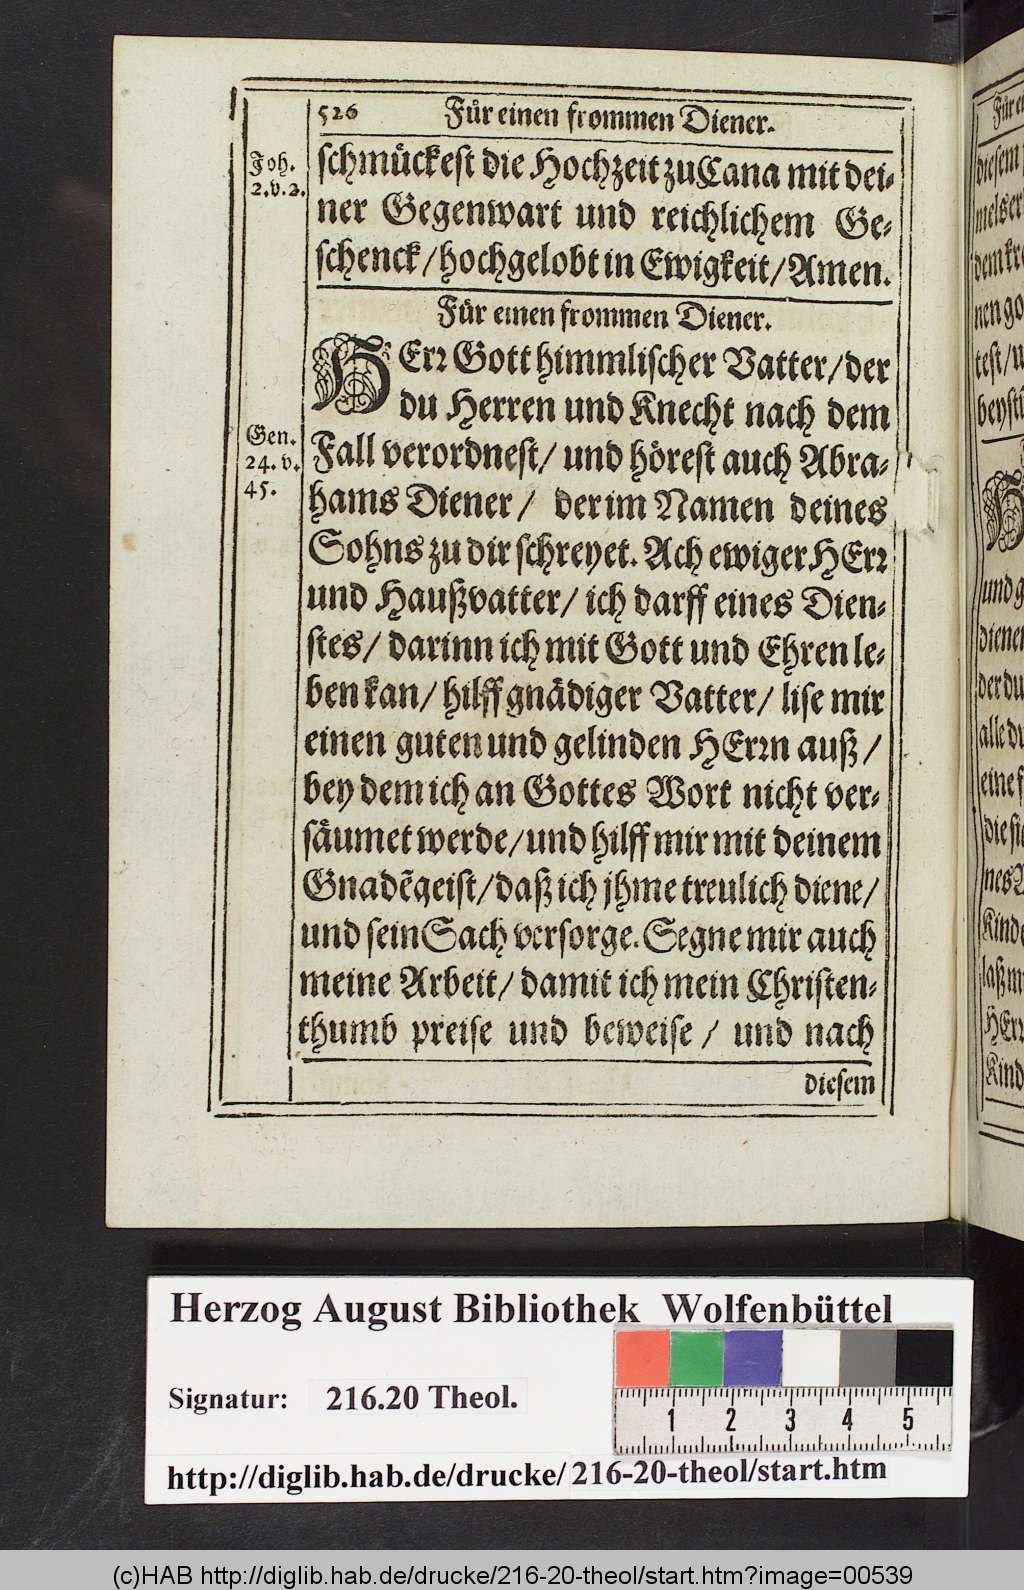 526 Für einen frommen Diener.
Joh.
2.v.2.
schmückest die Hochzeit zu Cana mit dei-
ner Gegenwart und reichlichem Ge-
schenck/hochgelobt in Ewigkeit/Amen.
Für einen frommen Diener.
HErr Gott himmlischer Vatter/der
du Herren und Knecht nach dem
Gen.
24. v.
45.
Fall verordnest/ und hörest auch Abra-
hams Diener/ der im Namen deines
Sohns zu dir schreyet. Ach ewiger HErr
und Haußvatter/ ich darff eines Dien-
stes/ darinn ich mit Gott und Ehren le-
ben kan/ hilff gnädiger Vatter/ lise mir
einen guten und gelinden HErrn auß/
bey dem ich an Gottes Wort nicht ver-
säumet werde/und hilff mir mit deinem
Gnadẽgeist/daß ich jhme treulich diene/
und sein Sach versorge. Segne mir auch
meine Arbeit/ damit ich mein Christen-
thumb preise und beweise/ und nach
diesem
Für
diesem
dem
nen
test/
und
diener
der du
alle
eine
die
nes
Kinde
laß
HErr
Kind
Herzog August Bibliothek Wolfenbüttel
Signatur: 216.20 Theol.
1 2 3 4 5
http://diglib.hab.de/drucke/216-20-theol/start.htm
(c)HAB http://diglib.hab.de/drucke/216-20-theol/start.htm?image=00539